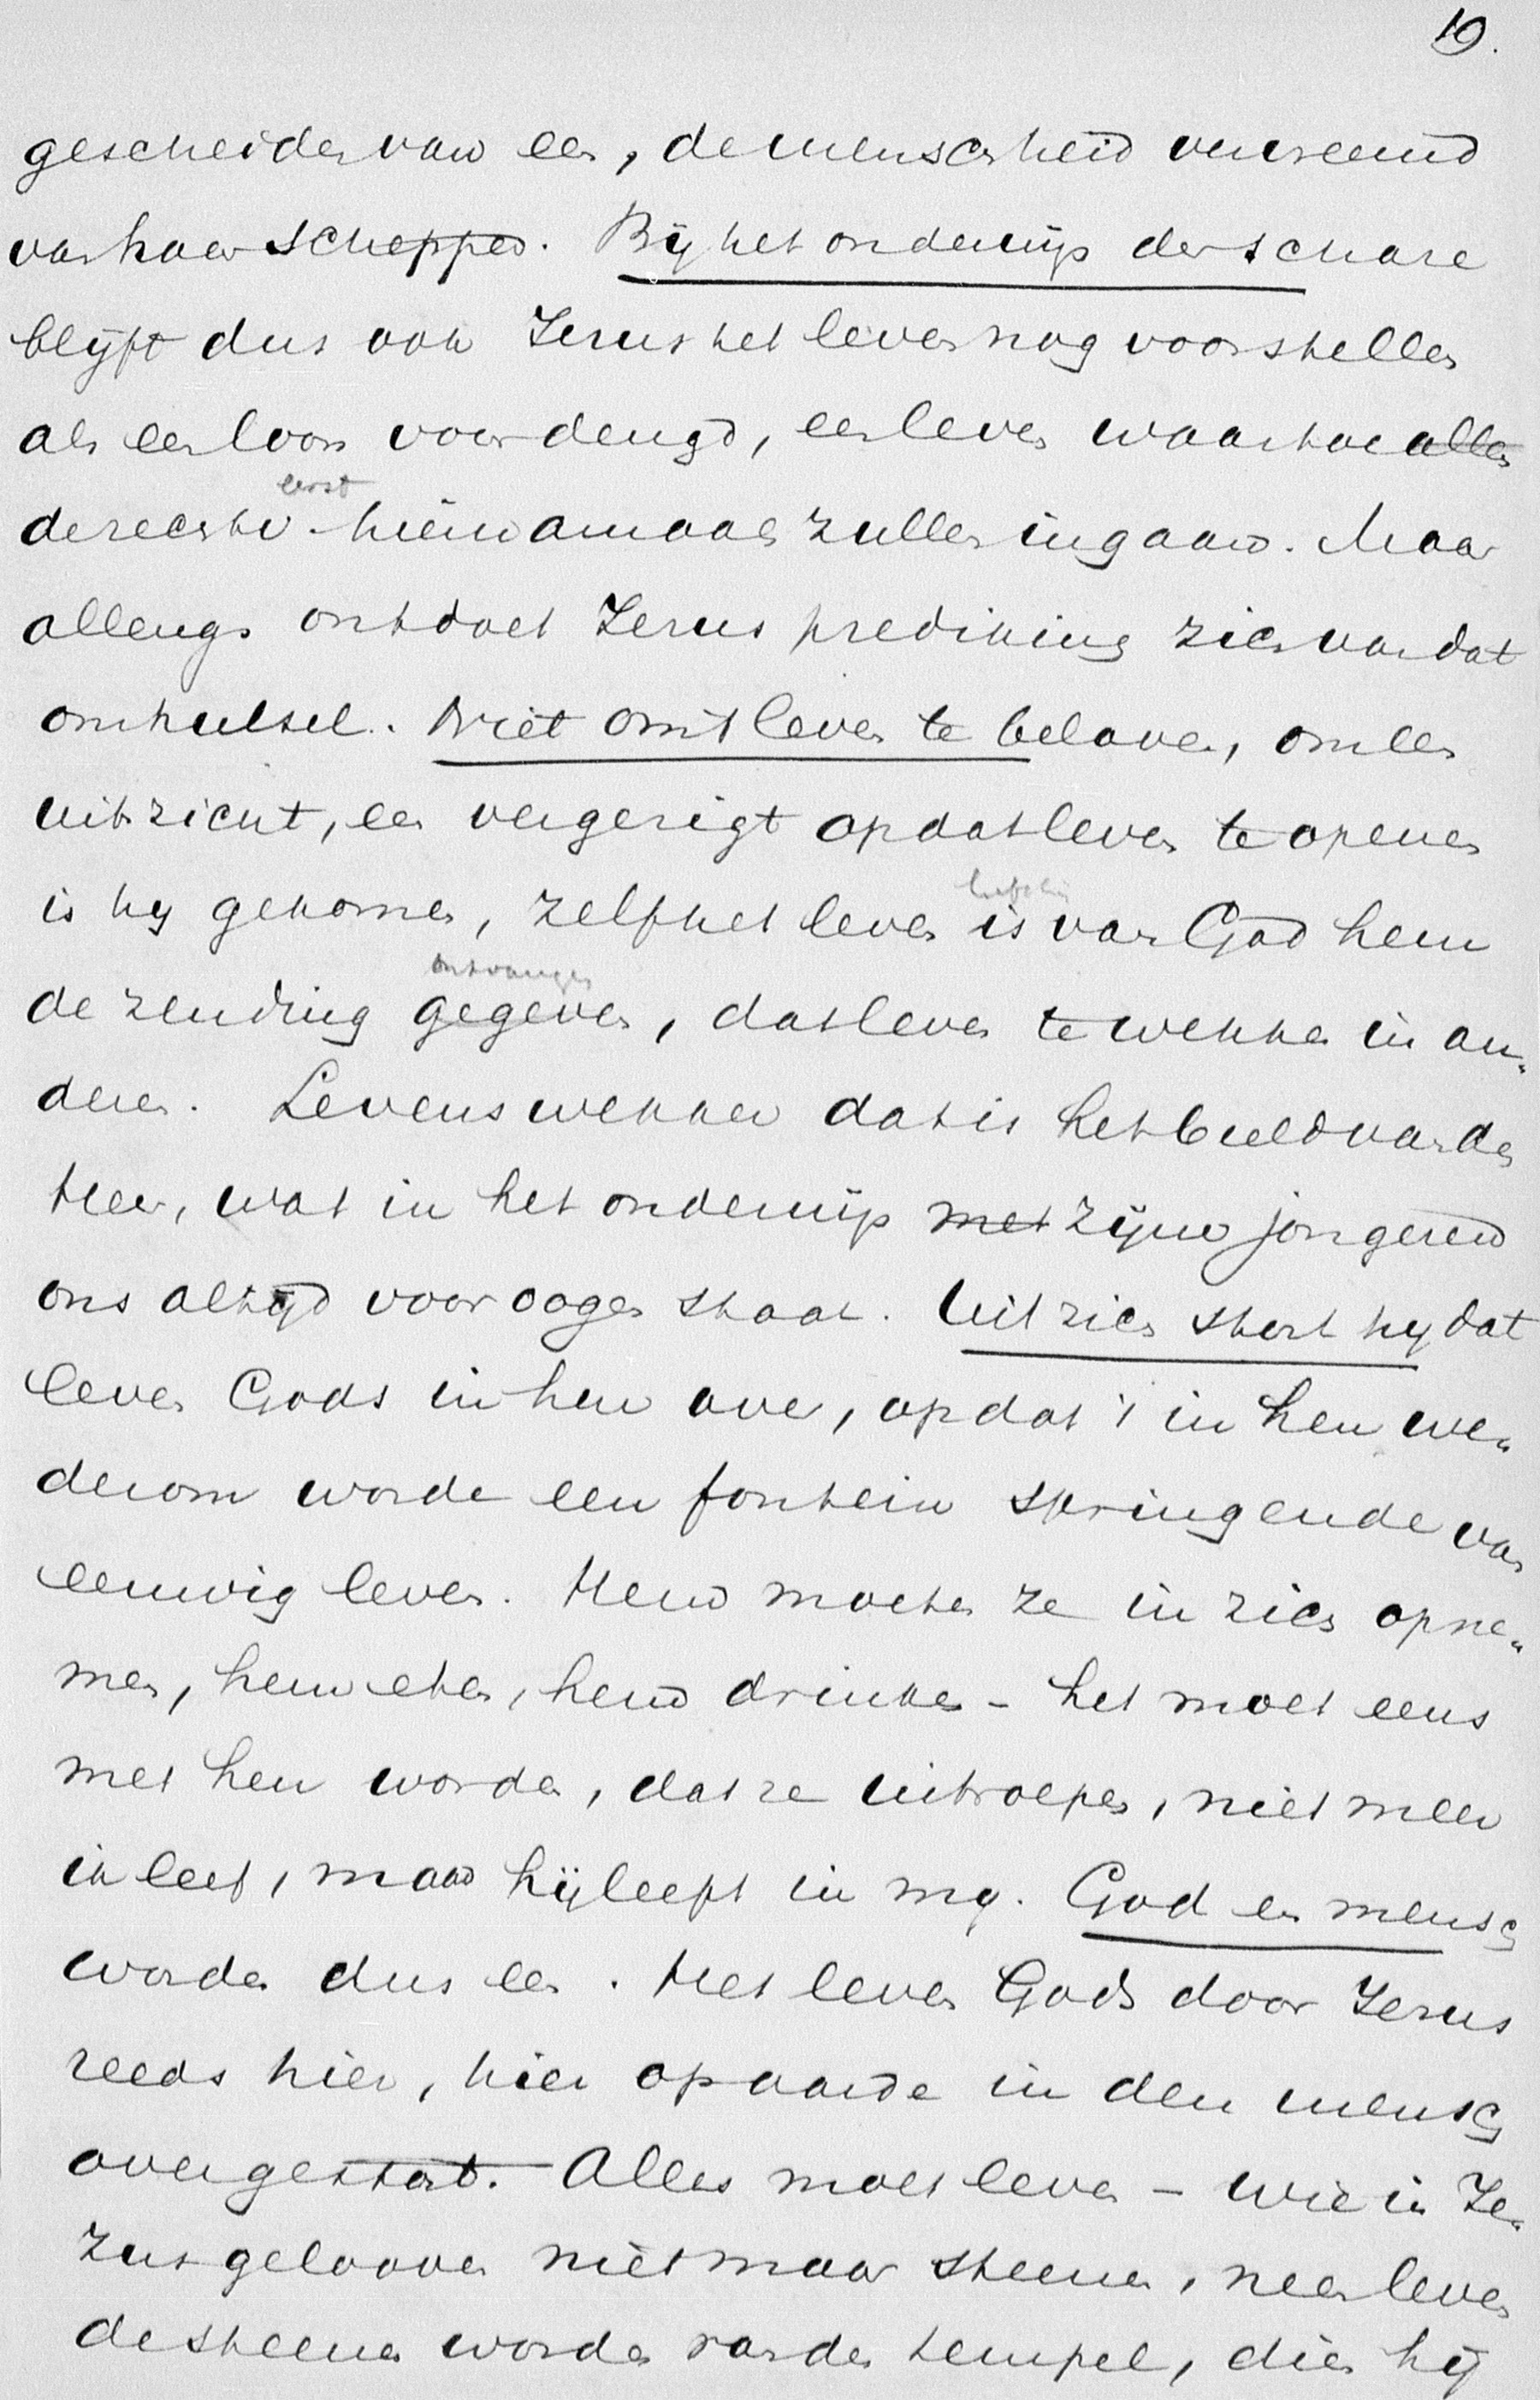 19.
gescheiden van een, de menschheid vervreemd
van haar Schepper. Bij het onderwijs der schare
blijft dus ook Jezus het leven nog voorstellen
als een loon voor deugd, een leven waartoe alle
de rechtv. eerst hiernamaals zullen ingaan. Maar
allengs ontdoet Jezus prediking zich van dat
omhulsel. Niet om 't leven te beloven, om een
uitzicht, een vergezigt op dat leven te openen
is hij gekomen, zelf het leven is van God hem
de zending gegeven, ontvangen dat leven te wekken in an-
deren. Levenswekker dat is het beeld van den
Heer, wat in het onderwijs met zijne jongeren
ons altijd voor oogen staat. Uit zich stort hij dat
leven Gods in hen over, opdat 't in hen we-
derom worde een fontein springende van
eeuwig leven. Hem moeten ze in zich opne-
men, hem eten, hem drinken - het moet eens
met hen worden, dat ze uitroepen, niet meer
ik leef, maar hij leeft in mij. God en mensch
worden dus een. Het leven Gods door Jezus
reeds hier, hier op aarde in den mensch
overgestort. Alles moet leven - wie in Je-
zus gelooven niet maar steenen, neen leven
de steenen worden van den tempel, dien hij